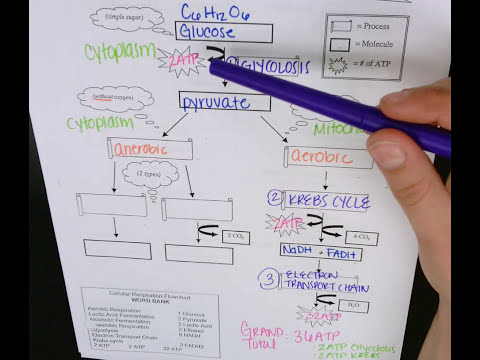 (simple sugar)
C6H12O6
Glucose
= Process
= Molecule
= # of ATP
Cytoplasm
2ATP
GLYCOLOSIS
(without oxygen)
pyruvate
Cytoplasm
Mitoch
anerobic
aerobic
(2 types)
2 KREBS CYCLE
2ATP
2 CO2
4 CO2
NaDH + FADH
3 ELECTRON
TRANSPORT CHAIN
H2O
32ATP
Cellular Respiration Flowchart
WORD BANK
Aerobic Respiration
Lactic Acid Fermentation
Alcoholic Fermentation
Anaerobic Respiration
Glycolysis
Electron Transport Chain
Krebs cycle
2 ATP 2 ATP 32 ATP
1 Glucose
2 Pyruvate
2 Lactic Acid
2 Ethanol
2 FADH2
GRAND: 36ATP
Total
- 2ATP Glycolosis
- 2ATP KREBS